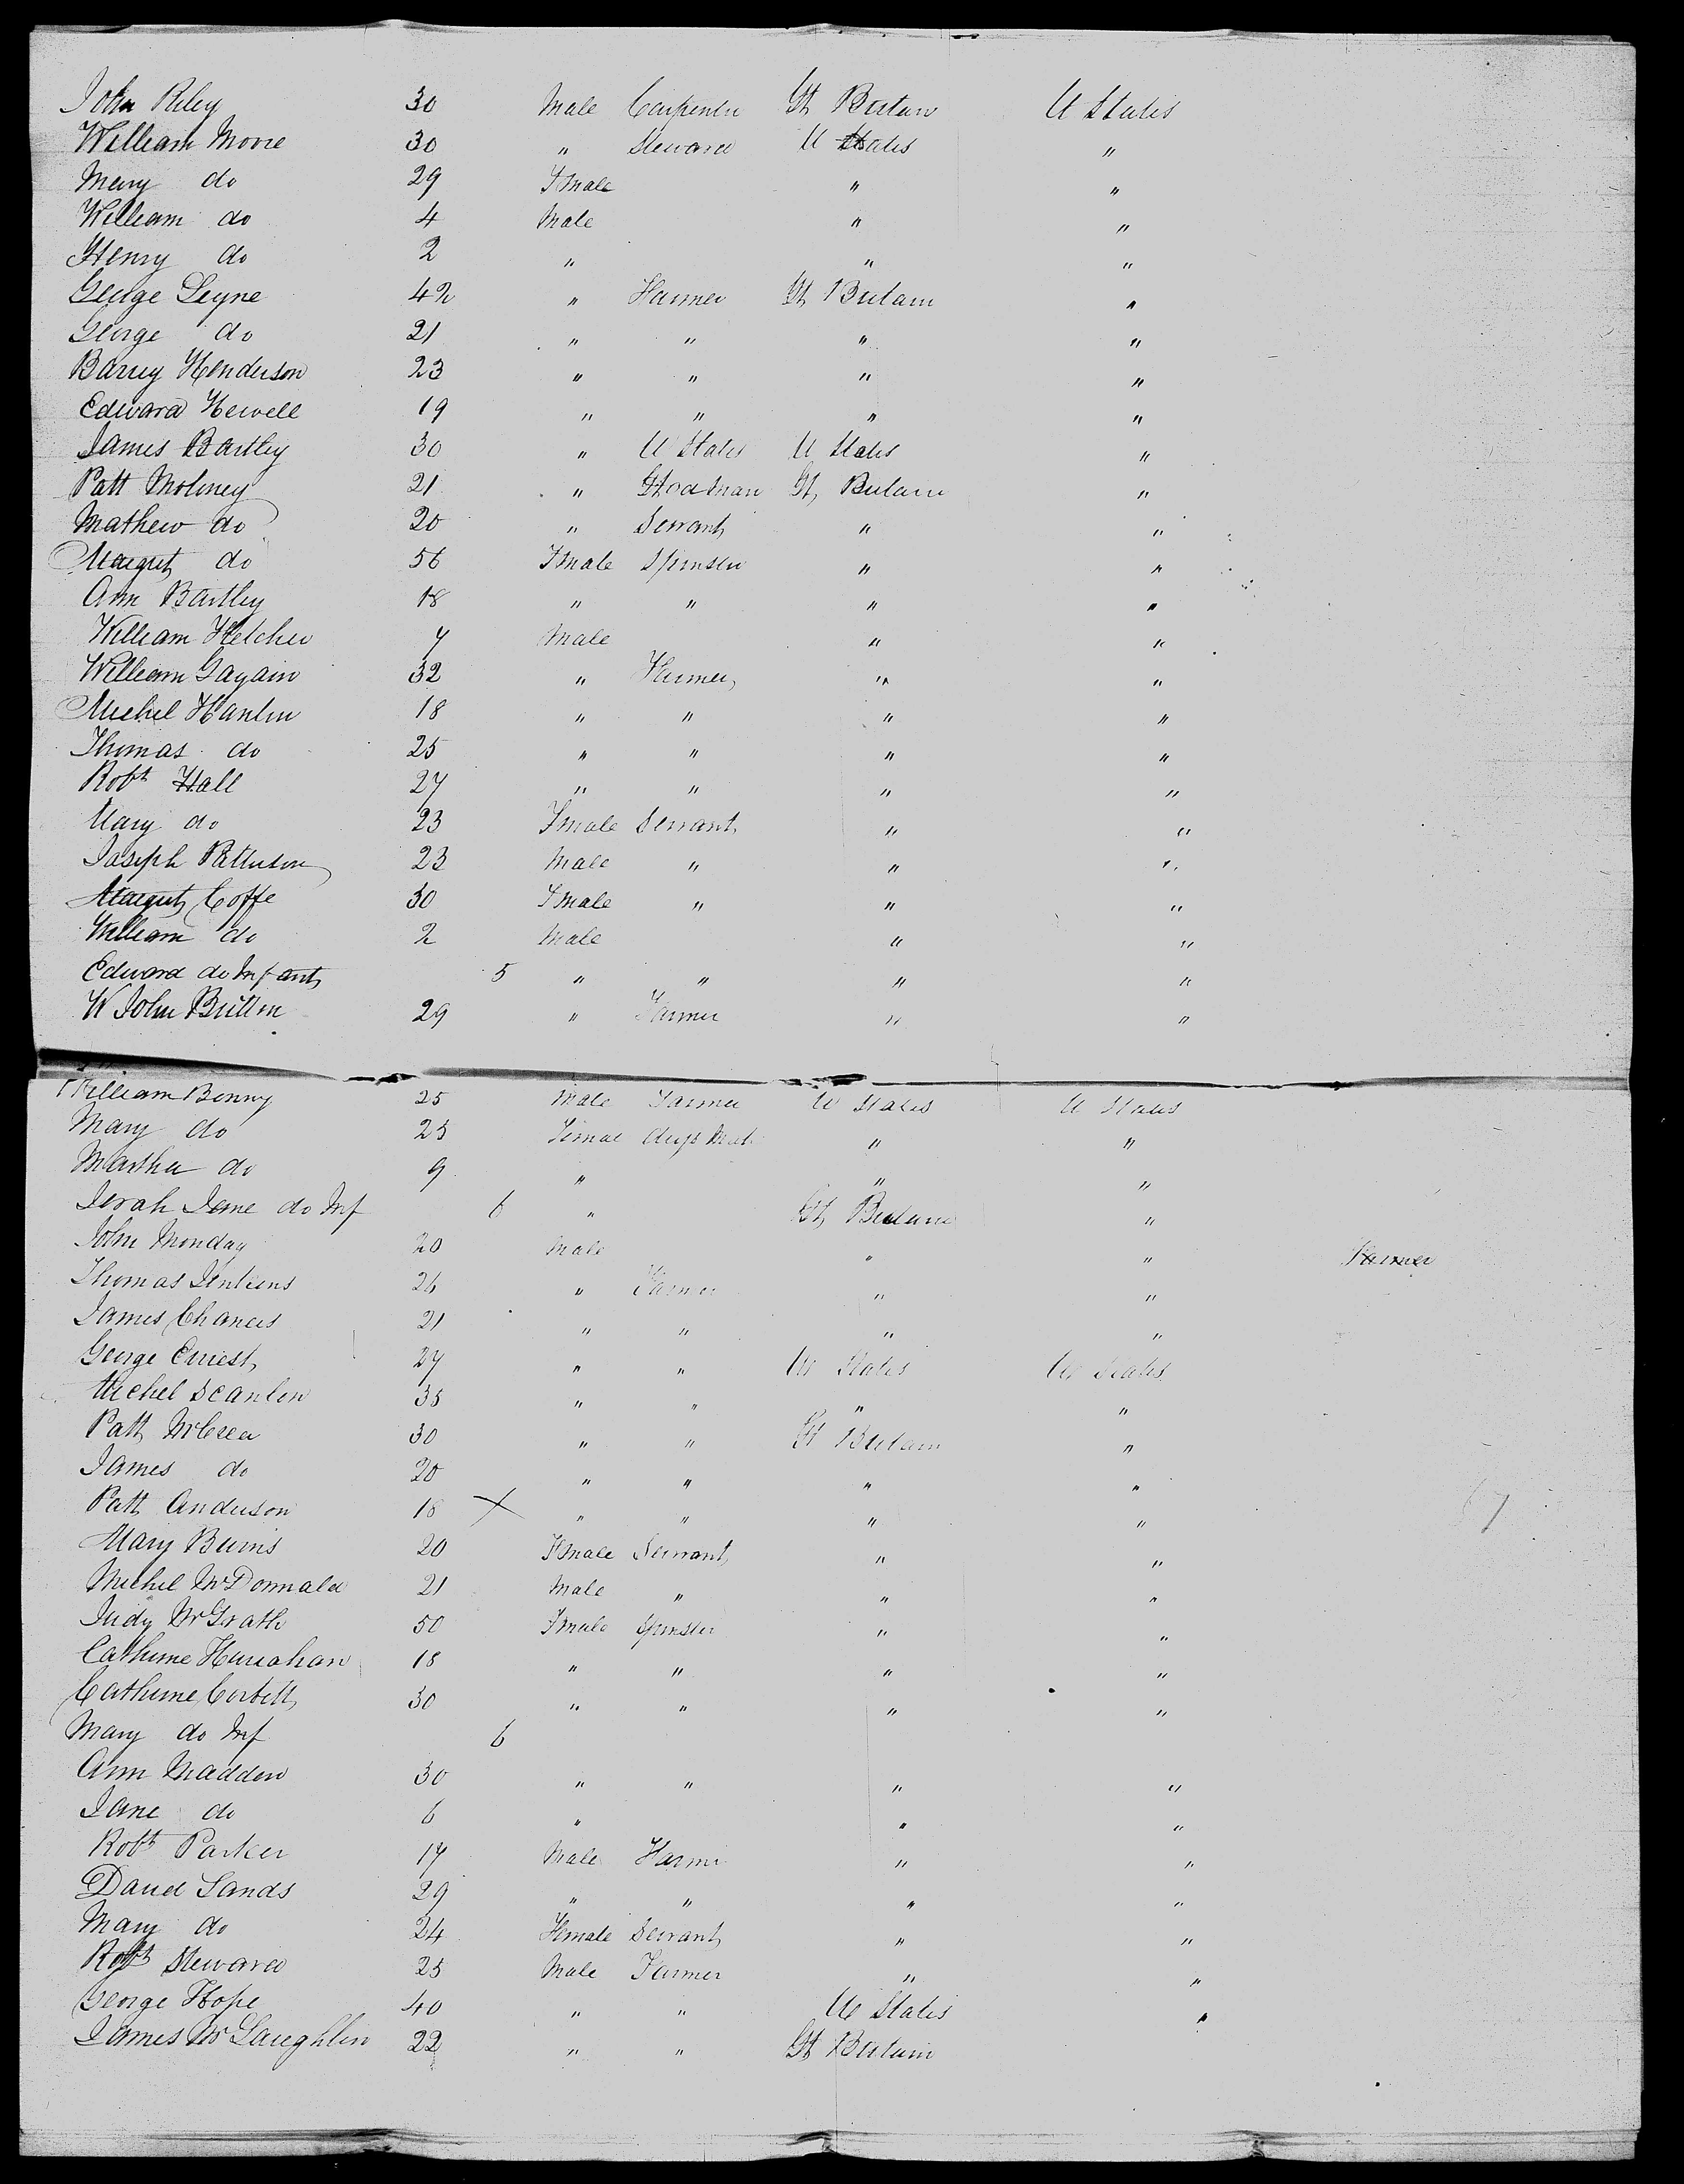 John Riley 30 Male Carpenter Gt Britain U States
William Moore 30 " Steward U States "
Mary do 29 Fmale " "
William do 4 Male " "
Henry do 2 " " "
George Leyne 42 " Farmer Gt Britain "
George do 21 " " " "
Barry Henderson 23 " " " "
Edward Hewell 19 " " " "
James Bartley 30 " U States U States "
Patt Moloney 21 " Gt Britain "
Mathew do 20 " Servant " "
Margret do 56 Fmale Spinster " "
Ann Bartley 18 " " " "
William Fletcher 7 Male " "
William Gagain 32 " Farmer " "
Michel Hanlin 18 " " " "
Thomas do 25 " " " "
Robt Hall 27 " " " "
Mary do 23 Fmale Servant " "
Joseph Patterson 23 Male " " "
Margret Coffe 30 Fmale " " "
William do 2 Male " "
Edward do Infant 5 " " " "
W John Britten 29 " Farmer " "
William Benny 25 Male Farmer U States U States
Mary do 25 Femal " "
Martha do 9 " " "
Serah Jane do Inf 6 " Gt Britain "
John Monday 20 Male " " Farmer
Thomas Jenkins 26 " Farmer " "
James Chances 21 " " " "
George Ernest 27 " " U States U States
Michel Scanlen 35 " " " "
Patt McCrea 30 " " Gt Britain "
James do 20 " " " "
Patt Anderson 18 X " " " "
Mary Burns 20 Fmale Servant " "
Michel McDonnald 21 Male " " "
Judy McGrath 50 Fmale Spinster " "
Catherine Hanahan 18 " " " "
Catherine Corbett 30 " " " "
Mary do Inf 6
Ann Madden 30 " " " "
Jane do 6 " " "
Robt Parker 17 Male Farmer " "
David Sands 29 " " " "
Mary do 24 Female Servant " "
Robt Steward 25 Male Farmer " "
George Hope 40 " " U States "
James McLaughlin 22 " " Gt Britain